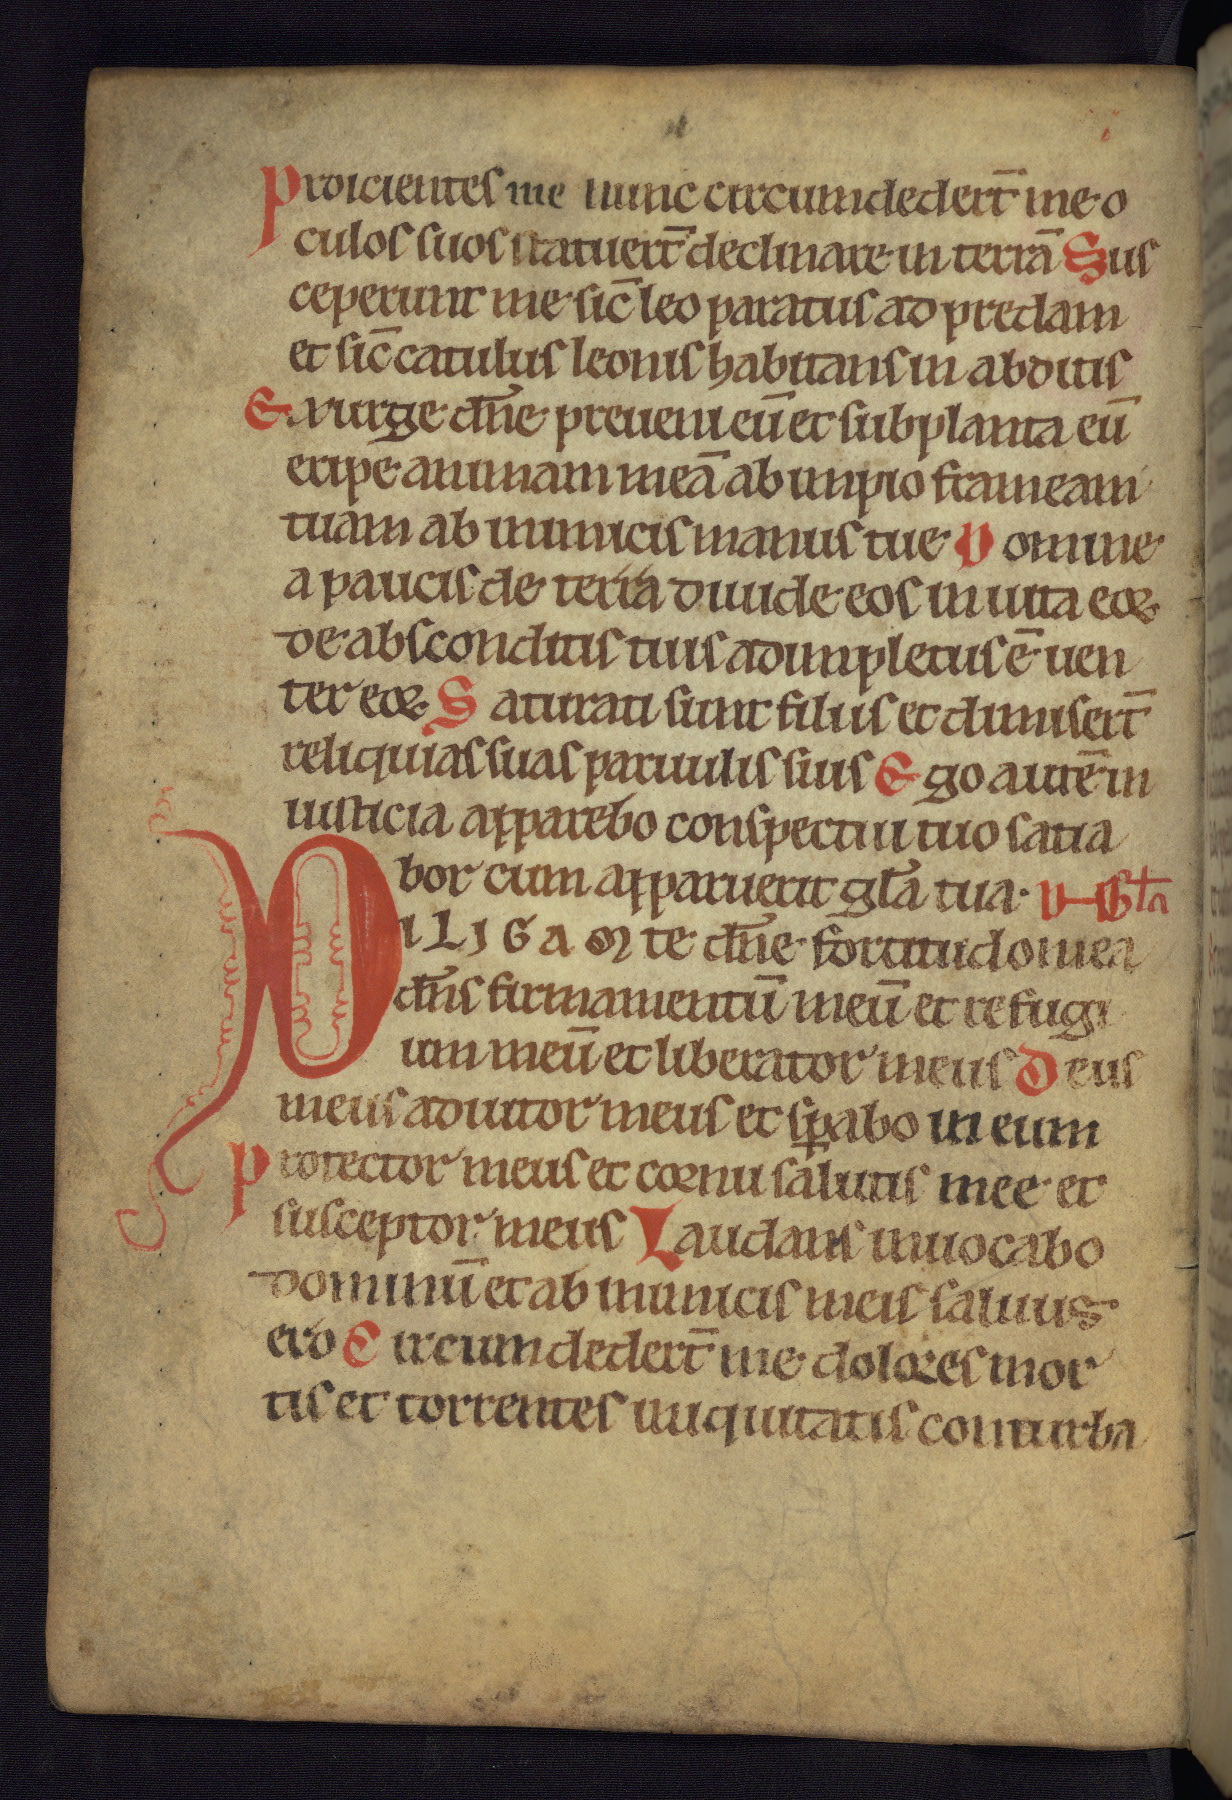 Proicientes me nunc circumdedert̄ me o
culos suos statuert̄ declinare in terrā Sus
ceperunt me sic̄ leo paratus ad predam
et sic̄ catulus leonis habitans in abditis
Exurge dn̄e preueni eū et subplanta eū
eripe animam meā ab impio frameam
tuam ab inimicis manus tue Domine
a paucis de terra diuide eos in uita eoꝝ
de absconditis tuis adimpletus ē uen
ter eoꝝ Saturati sunt filiis et dimisert̄
reliquias suas paruulis suis Ego autē in
iusticia apparebo conspectui tuo satia
bor cum apparuerit gl̄a tua. V Gl̄a
DILIGAM te dn̄e fortitudo mea
dn̄s firmamentū meū et refugi
um meū et liberator meus Deus
meus adiutor meus et sꝑabo in eum
Protector meus et cornu salutis mee et
susceptor meus Laudans inuocabo
dominū et ab inimicis meis saluus
ero Circumdedert̄ me dolores mor
tis et torrentes iniquitatis conturba